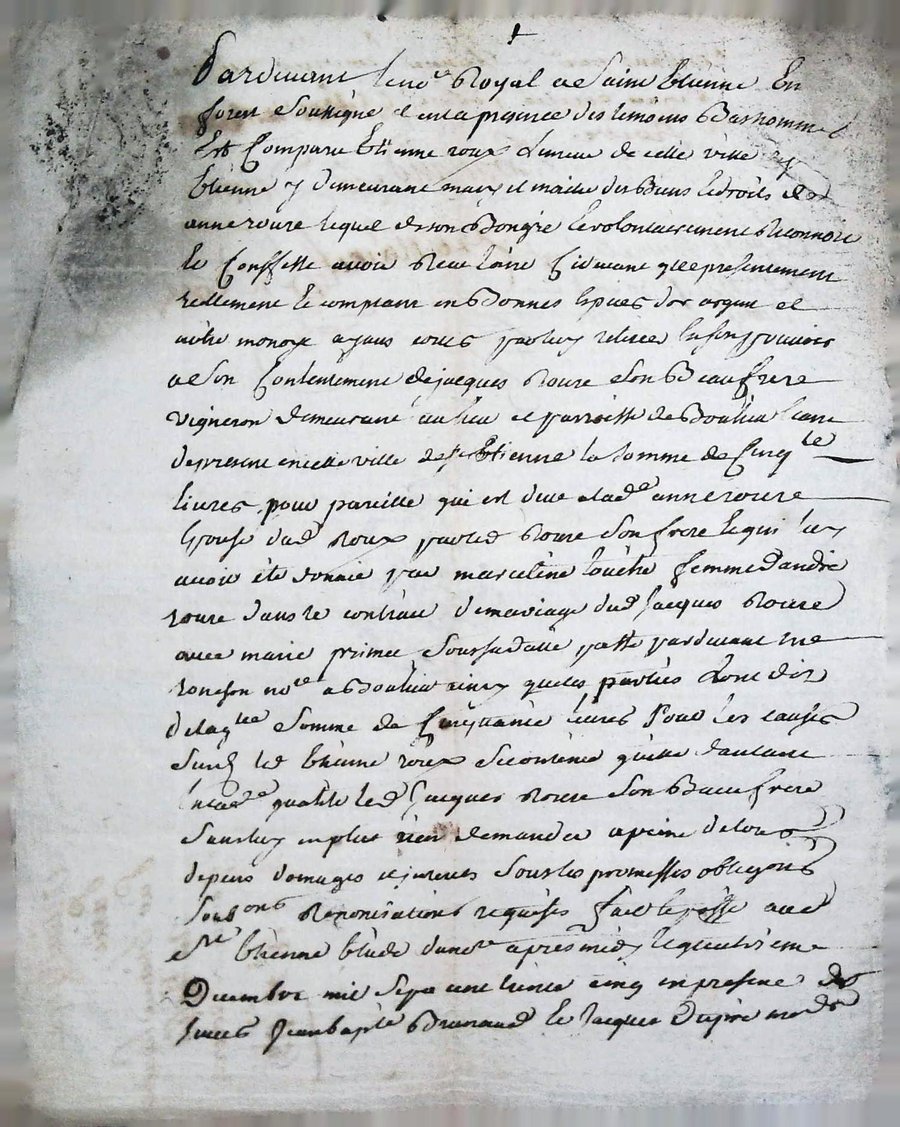 Pardevant le no.re Royal a Saint Etienne En
forest soussigné et en la presence des temoins Bas nommes
Est Comparu Etienne roux de cette ville
Etienne y demeurant mary et maitre des Biens et droits de
anne roure lequel de son Bon gré et volontairement Reconnoit
et Confesse avoir Receu cy devant presentement
reellement et comptant en Bonnes Espices d'or argent et
autre monoye ayans cours par luy retirees En son pouvoir
a son Contentement de jacques Roure son Beaufrere
vigneron demeurant au lieu et parroisse de Boulieu Etant
de present en cette ville de St Etienne la somme de Cinq.te
livres pour pareille qui est due a lad.e anne roure
Epouse dud. Roux par led. Roure son frere et qui luy
avoit été donnée par marceline femme d'andré
roure dans le contract de mariage dud. Jacques Roure
avec marie primet sous sa datte passé pardevant me
ronchon no.re a Boulieu ainsy que les parties dont dit
de laq.lle somme de Cinquante livres Pour les causes
Susd. led. Etienne roux se contente quitte d'autant
En cad.e qualité led. Jacques Roure son Beau frere
Sans luy en plus rien demander a peine de tous
depens domages et jnterets sous les promesses obligaõns
soub.ons Renonciations requises fait et passé aud.
St Etienne Etude dud no.re apres midy le quatrieme
Decembre mil sept cent trente cinq en presence de
sieurs Jean bapte Brunand et Jacques Dupin